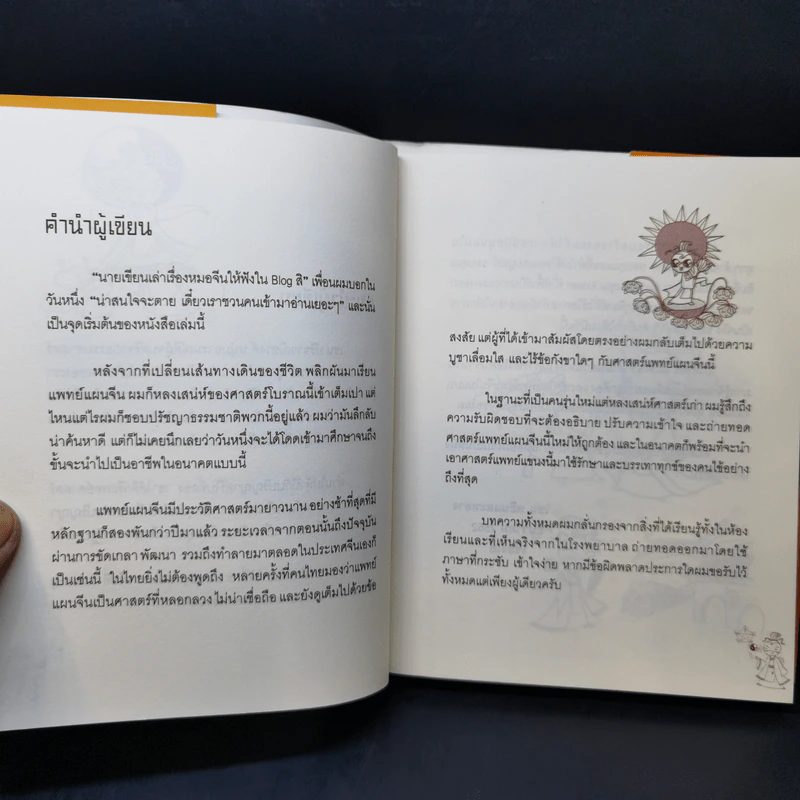 คำนำผู้เขียน
"นายเขียนเล่าเรื่องหมอจีนให้ฟังใน Blog สิ" เพื่อนผมบอกใน
วันหนึ่ง "น่าสนใจจะตาย เดี๋ยวเราชวนคนเข้ามาอ่านเยอะๆ" และนั่น
เป็นจุดเริ่มต้นของหนังสือเล่มนี้
หลังจากที่เปลี่ยนเส้นทางเดินของชีวิต พลิกผันมาเรียน
แพทย์แผนจีน ผมก็หลงเสน่ห์ของศาสตร์โบราณนี้เข้าเต็มเปา แต่
ไหนแต่ไรผมก็ชอบปรัชญาธรรมชาติพวกนี้อยู่แล้ว ผมว่ามันลึกลับ
น่าค้นหาดี แต่ก็ไม่เคยนึกเลยว่าวันหนึ่งจะได้โดดเข้ามาศึกษาจนถึง
ขั้นจะนำไปเป็นอาชีพในอนาคตแบบนี้
แพทย์แผนจีนมีประวัติศาสตร์มายาวนาน อย่างช้าที่สุดที่มี
หลักฐานก็สองพันกว่าปีมาแล้ว ระยะเวลาจากตอนนั้นถึงปัจจุบัน
ผ่านการขัดเกลา พัฒนา รวมถึงทำลายมาตลอดในประเทศจีนเองก็
เป็นเช่นนี้ ในไทยยิ่งไม่ต้องพูดถึง หลายครั้งที่คนไทยมองว่าแพทย์
แผนจีนเป็นศาสตร์ที่หลอกลวง ไม่น่าเชื่อถือ และยังดูเต็มไปด้วยข้อ
สงสัย แต่ผู้ที่ได้เข้ามาสัมผัสโดยตรงอย่างผมกลับเต็มไปด้วยความ
บูชาเลื่อมใส และไร้ข้อกังขาใดๆ กับศาสตร์แพทย์แผนจีนนี้
ในฐานะที่เป็นคนรุ่นใหม่แต่หลงเสน่ห์ศาสตร์เก่า ผมรู้สึกถึง
ความรับผิดชอบที่จะต้องอธิบาย ปรับความเข้าใจ และถ่ายทอด
ศาสตร์แพทย์แผนจีนนี้ใหม่ให้ถูกต้อง และในอนาคตก็พร้อมที่จะนำ
เอาศาสตร์แพทย์แขนงนี้มาใช้รักษาและบรรเทาทุกข์ของคนไข้อย่าง
ถึงที่สุด
บทความทั้งหมดผมกลั่นกรองจากสิ่งที่ได้เรียนรู้ทั้งในห้อง
เรียนและที่เห็นจริงจากในโรงพยาบาล ถ่ายทอดออกมาโดยใช้
ภาษาที่กระชับ เข้าใจง่าย หากมีข้อผิดพลาดประการใดผมขอรับไว้
ทั้งหมดแต่เพียงผู้เดียวครับ